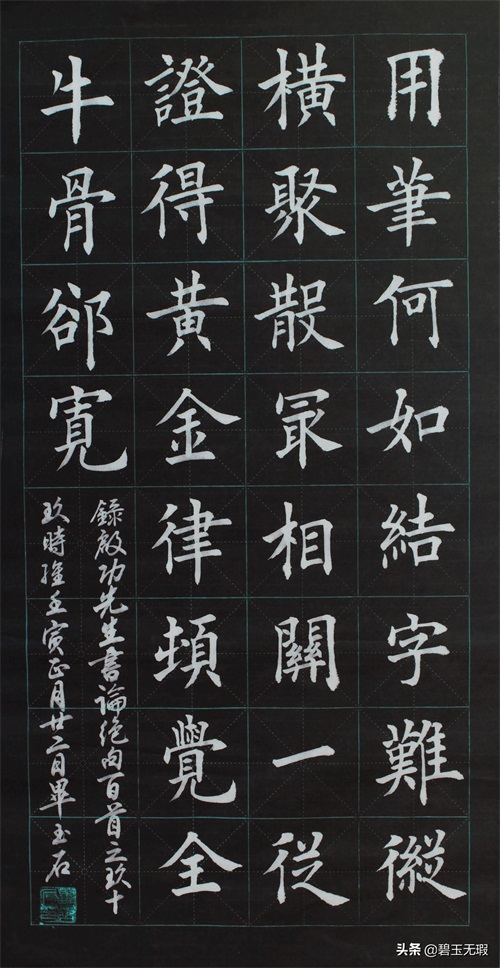 用筆何如結字難縱
横聚散冣相關一從
證得黄金律頓覺全
牛骨郤寬
錄啟功先生書論絕句百首之玖十
玖時維壬寅正月廿二日畢玉石
头条 @碧玉无瑕